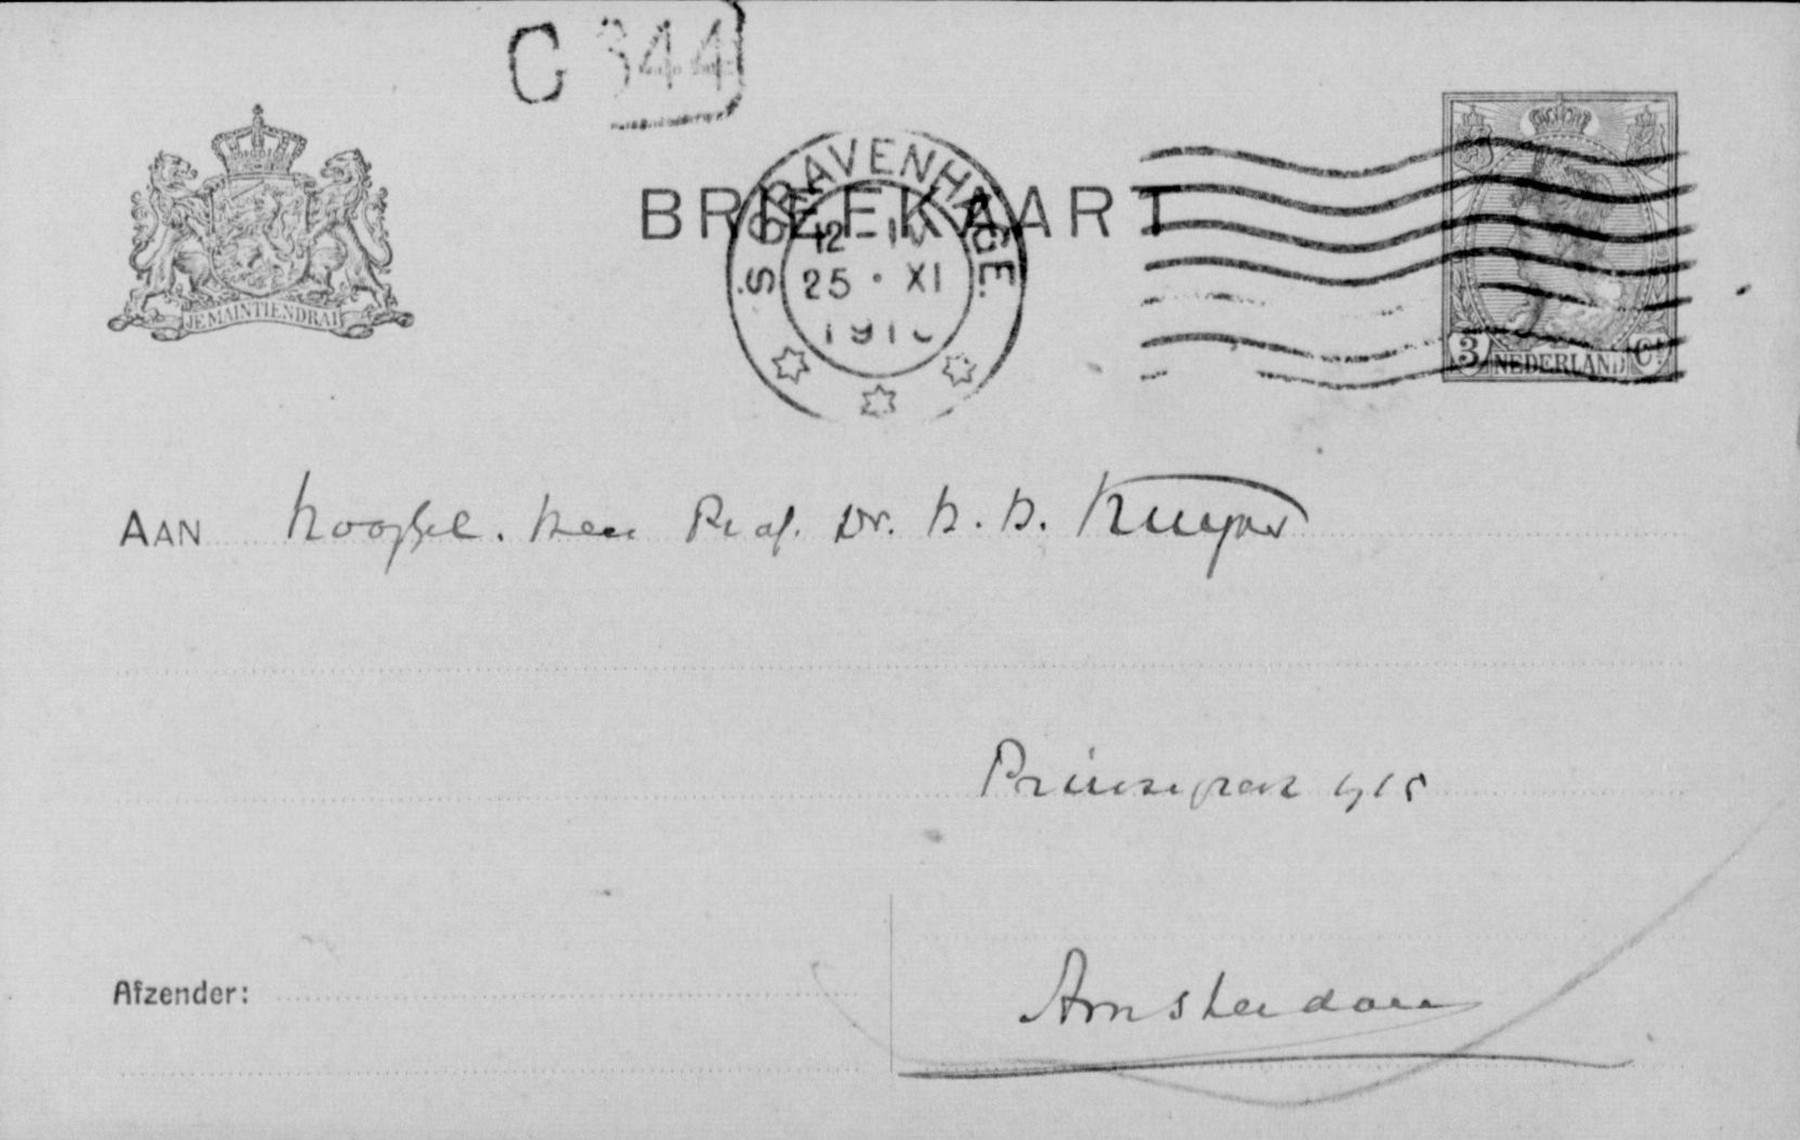 C 344
JE MAINTIENDRAI
BRIEFKAART
'S GRAVENHAGE.
12 - 1N
25 · XI
191
3 NEDERLAND Ct
AAN Hooggel. Heer Prof. Dr. H. H. Kuyper
Prinsengracht
Amsterdam
Afzender: